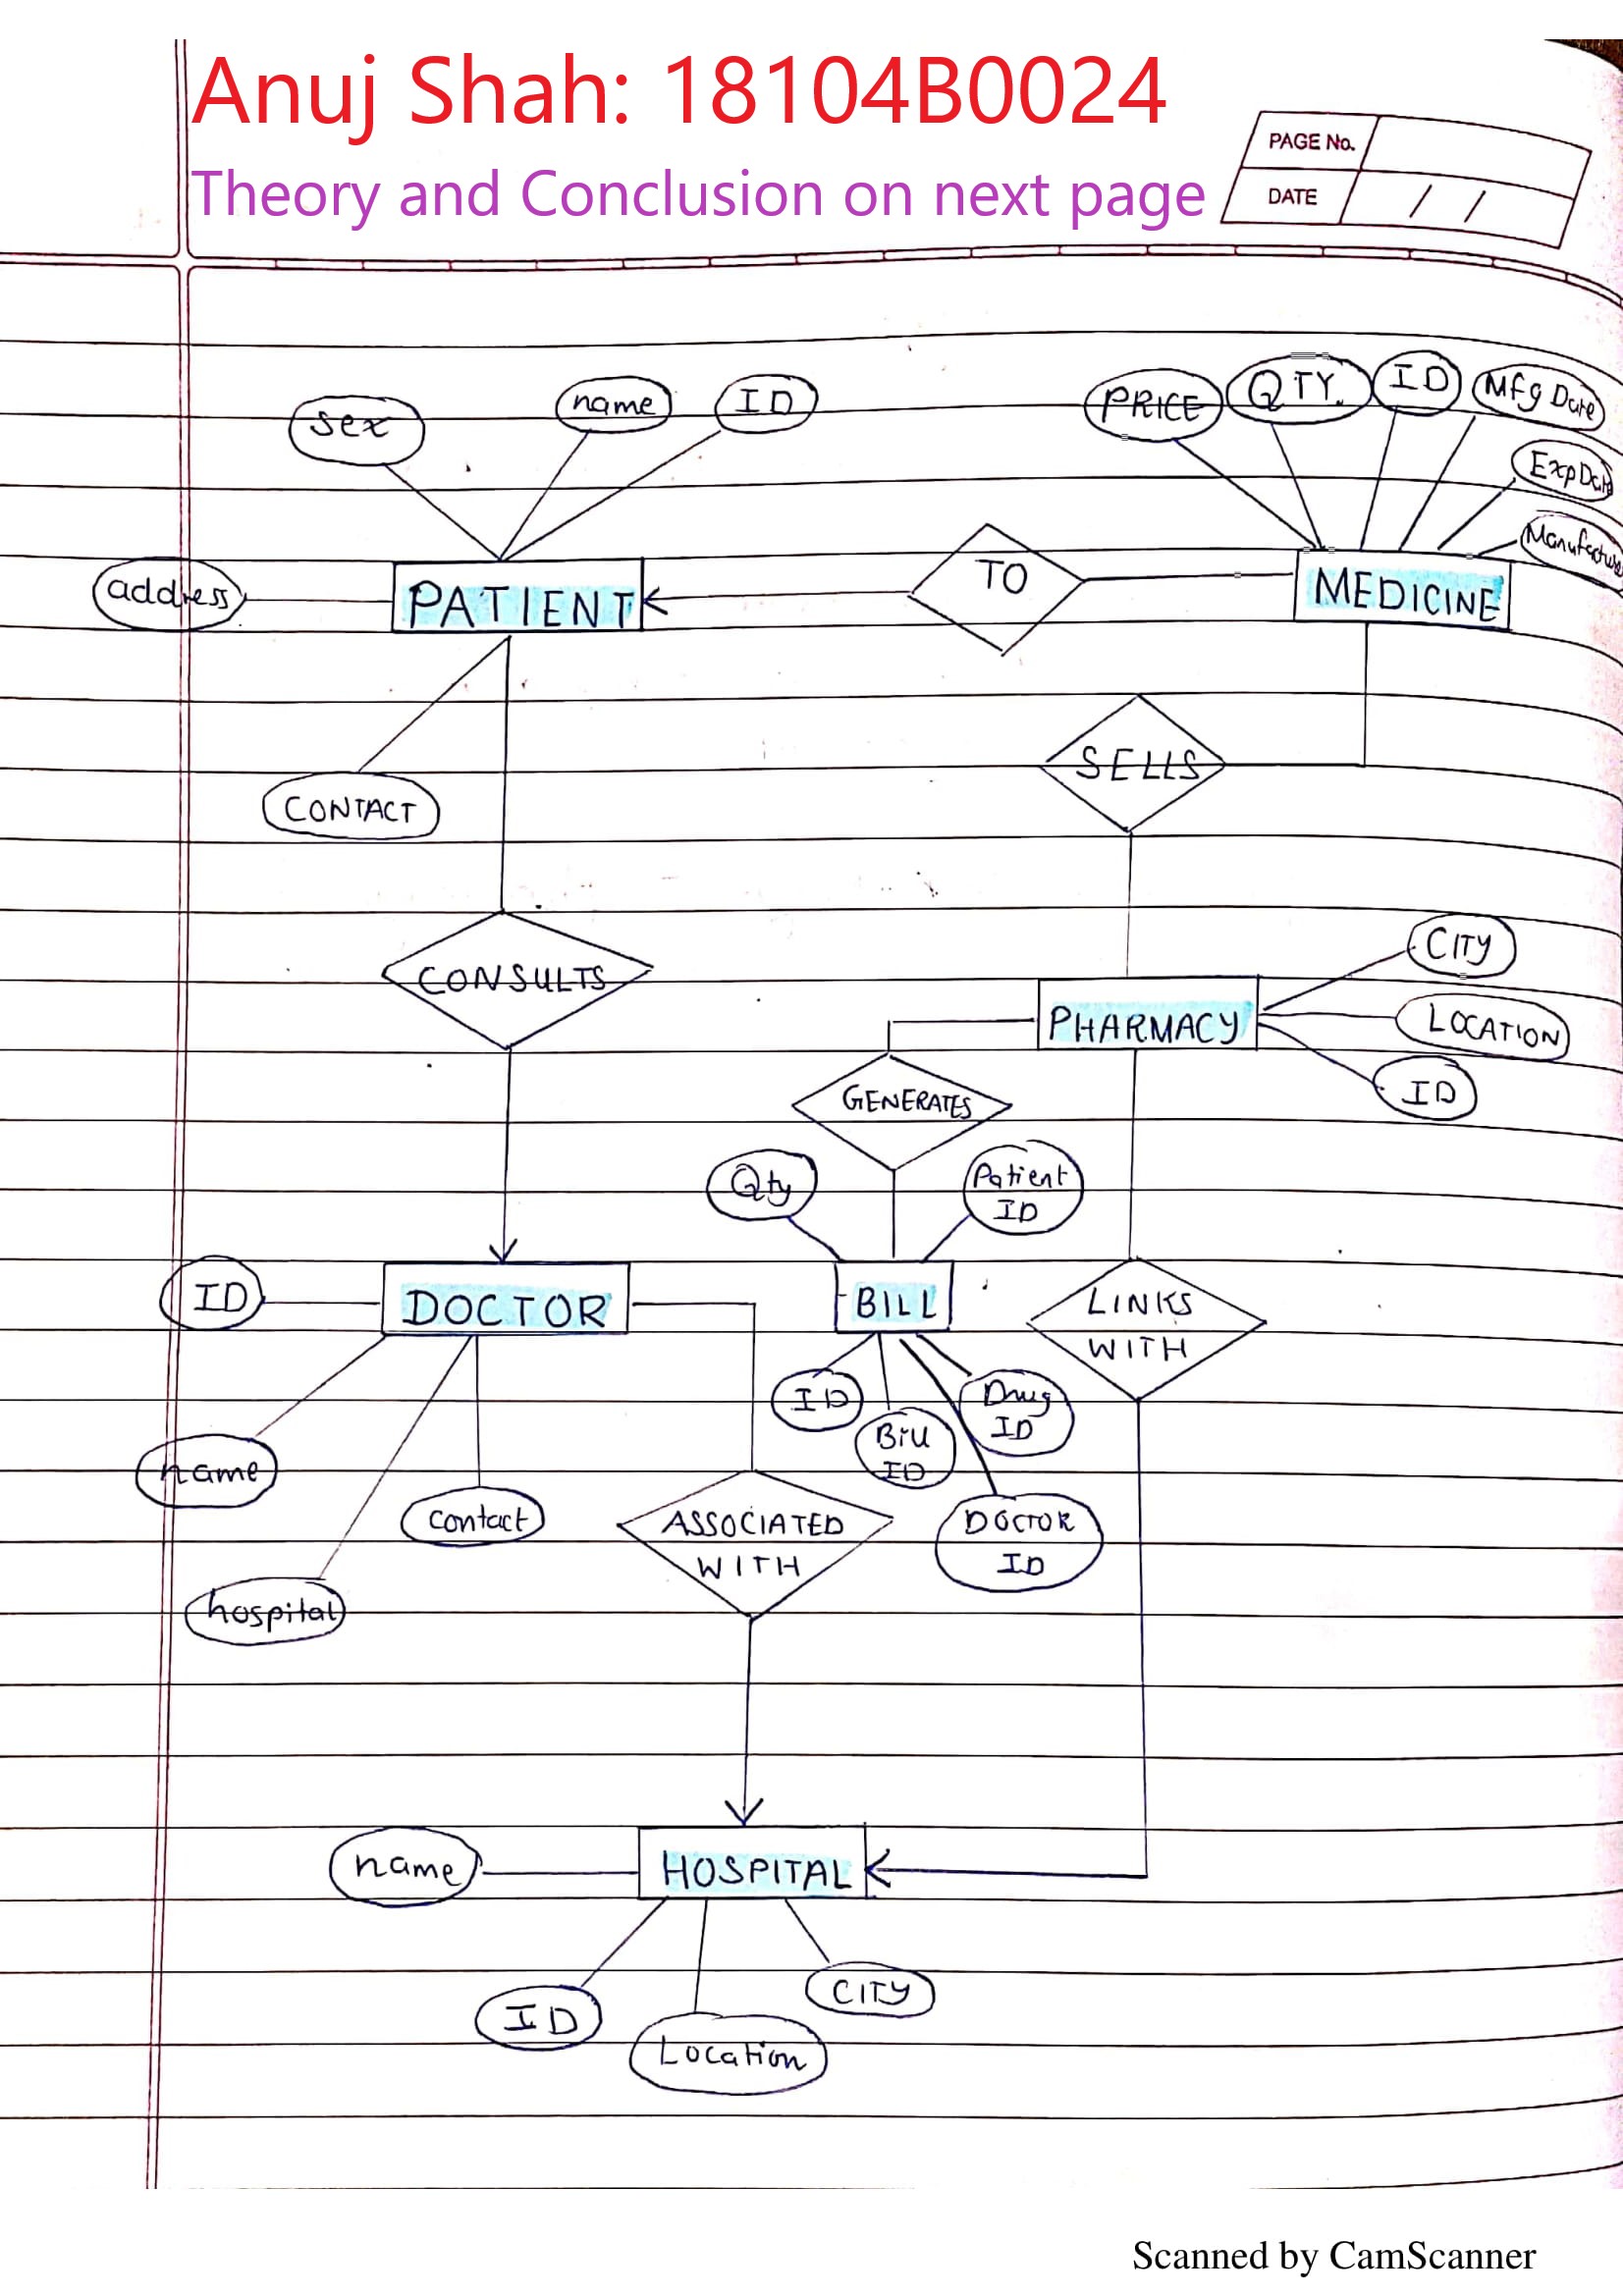 Anuj Shah: 18104B0024
Theory and Conclusion on next page
PAGE No.
DATE / /
sex
name
ID
PRICE
QTY.
ID
Mfg Date
Exp Date
Manufacture
address
PATIENT
TO
MEDICINE
CONTACT
SELLS
CONSULTS
CITY
PHARMACY
LOCATION
ID
GENERATES
Qty
Patient
ID
ID
DOCTOR
BILL
LINKS
WITH
name
contact
ID
Bill
ID
Drug
ID
hospital
ASSOCIATED
WITH
DOCTOR
ID
name
HOSPITAL
ID
Location
CITY
Scanned by CamScanner